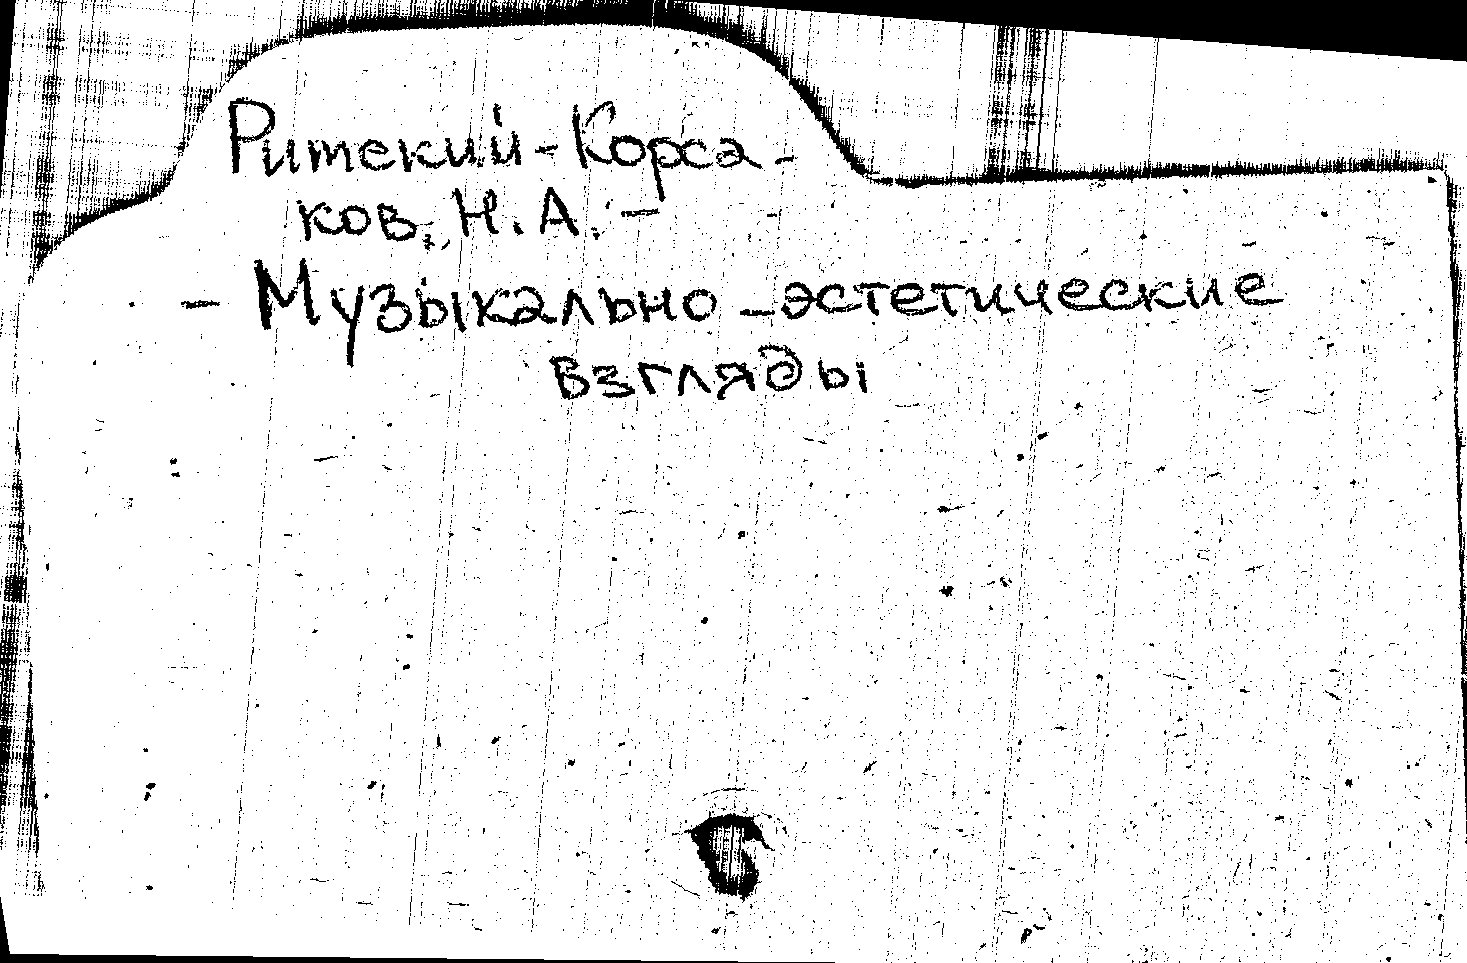 Римский-Корса-
ков, Н.А. -
- Музыкально-эстетические
взгляды